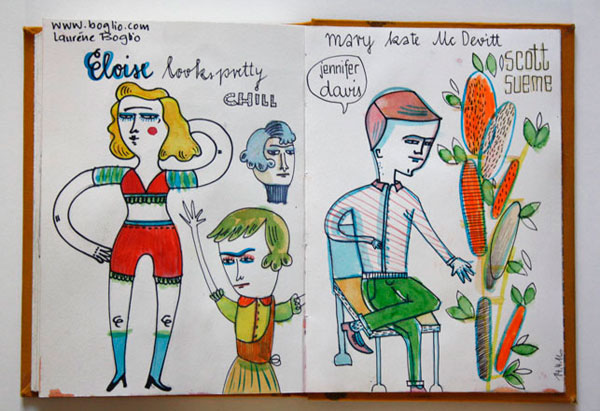 www.boglio.com
Laurène Boglio
Éloise looks pretty
CHILL
mary kate Mc Devitt
jennifer
davis
scott
sueme